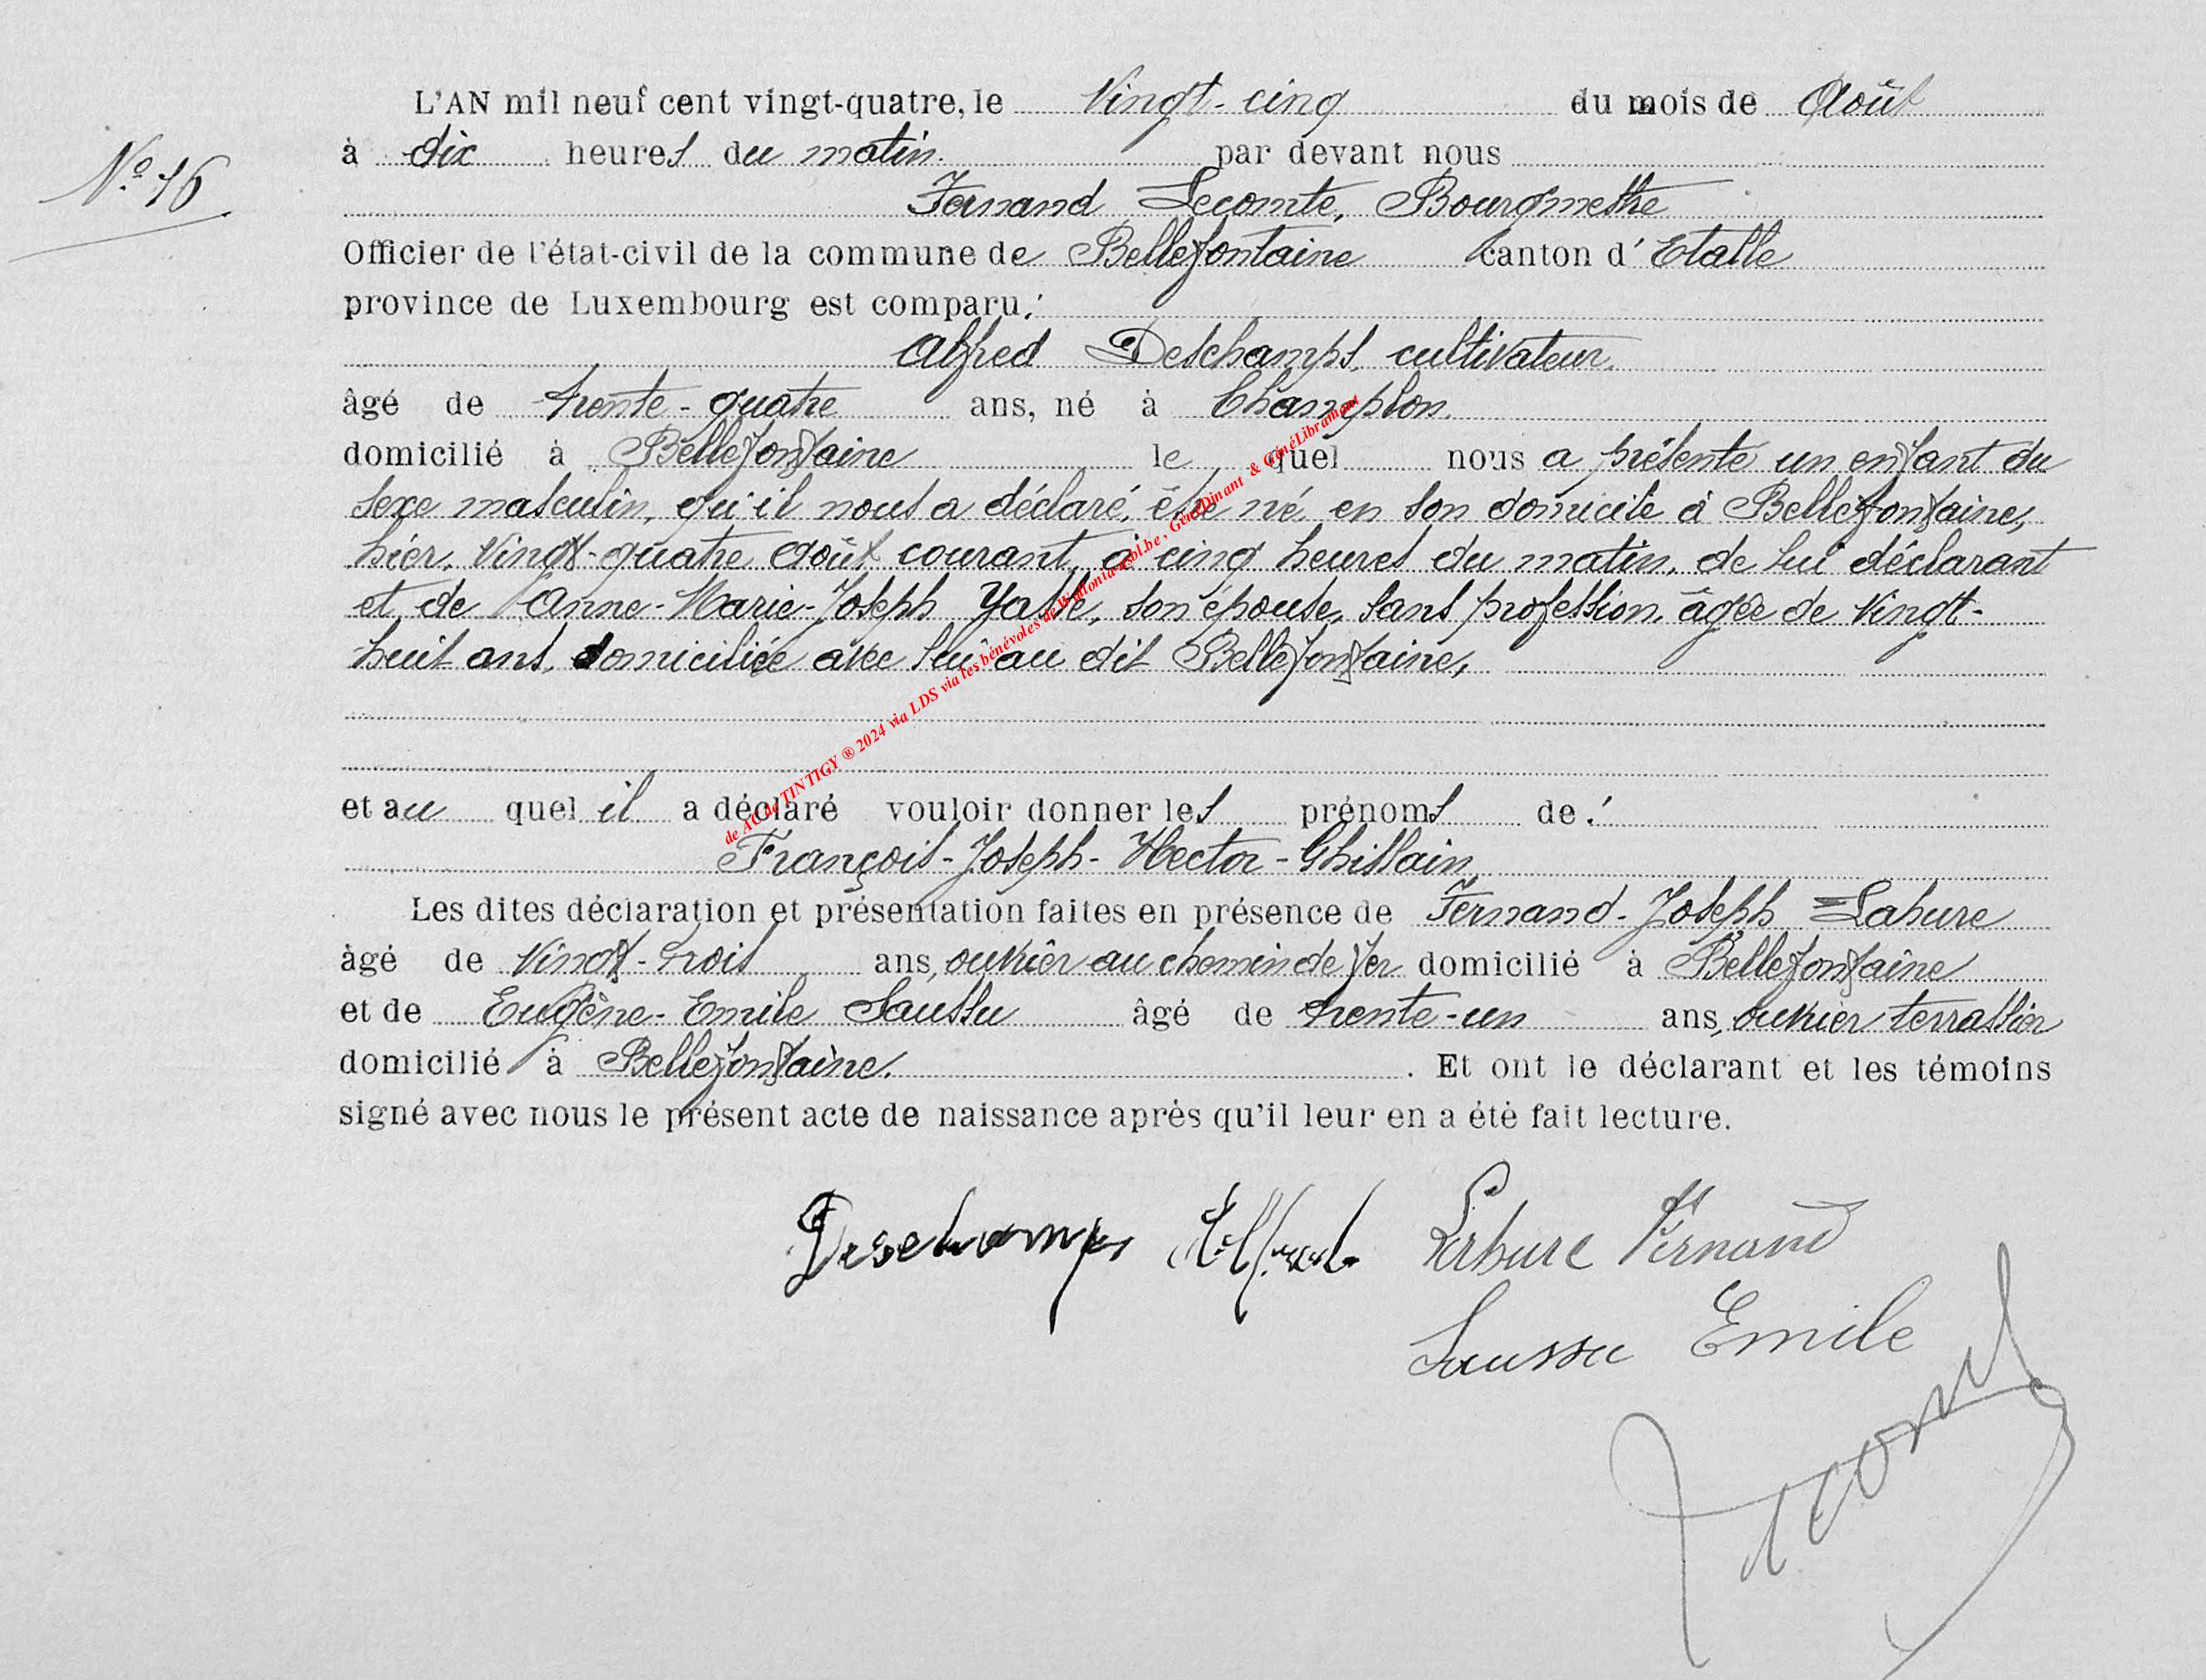 L'AN mil neuf cent vingt-quatre, le Vingt-cinq du mois de Août
à dix heures du matin. par devant nous
N° 16
Fernand Lecomte, Bourgmestre
Officier de l'état-civil de la commune de Bellefontaine canton d'Etalle
province de Luxembourg est comparu:
Alfred Deschamps, cultivateur,
âgé de trente-quatre ans, né à Champlon,
domicilié à Bellefontaine le quel nous a présenté un enfant du
sexe masculin, qu'il nous a déclaré, être né, en son domicile à Bellefontaine,
hier, vingt-quatre août courant, à cinq heures du matin, de lui déclarant
et de Anne-Marie-Joseph son épouse, sans profession, âgée de vingt-
huit ans, domiciliée avec lui au dit Bellefontaine,
et au quel il a déclaré vouloir donner les prénoms de:
François-Joseph-Hector-Ghislain,
Les dites déclaration et présentation faites en présence de Fernand-Joseph Lahure
âgé de vingt-trois ans, ouvrier au chemin de fer domicilié à Bellefontaine
et de Eugène-Emile Saussu âgé de trente-un ans, ouvrier terrassier
domicilié à Bellefontaine. . Et ont le déclarant et les témoins
signé avec nous le présent acte de naissance après qu'il leur en a été fait lecture.
Deschamps Alfred Lahure Fernand
Saussu Emile
Lecomte
de AC de TINTIGY ® 2024 via LDS via les bénévoles de Wallonia-asbl.be, GénéDinant & GénéLibramont